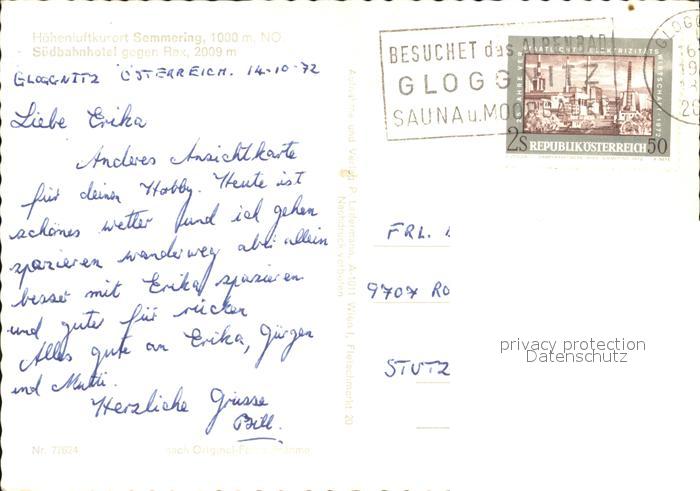 Höhenluftkurort Semmering, 1000 m, NÖ
Südbahnhotel gegen Rax, 2009 m
GLOGGNITZ ÖSTERREICH. 14-10-72
Liebe Erika
Anderes Ansichtkarte
für deinen Hobby. Heute ist
schönes wetter und ich gehen
spazieren wanderweg aber allein
besser mit Erika spazieren
und guter für rücken
Alles gute an Erika, Jürgen
und Mutti.
Herzliche Grüsse
Bill.
Nr. 77624
nach Original-Farbaufnahme
P. Ledermann, A-1011 Wien I, Fleischmarkt 20
Nachdruck verboten
BESUCHET das ALPENBAD
GLOGGNITZ
SAUNA u. MOORBAD
GLOGG
2S REPUBLIK ÖSTERREICH 50
FRL.
9707 RO
STUTZ
privacy protection
Datenschutz